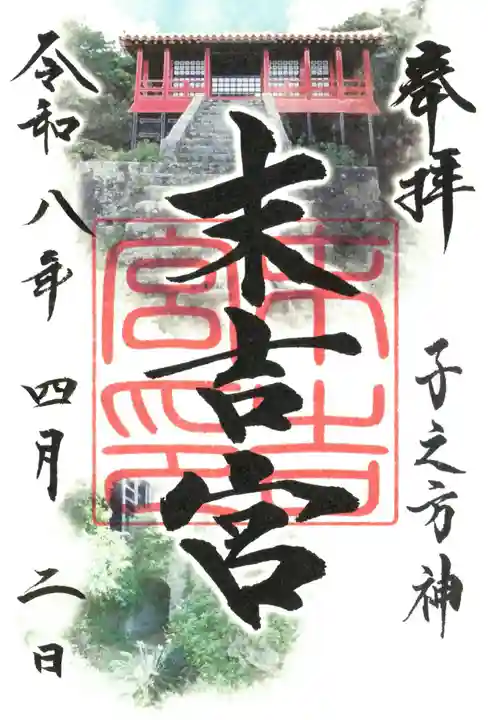 奉拝
子之方神
末吉宮
末吉宮印
令和八年四月二日